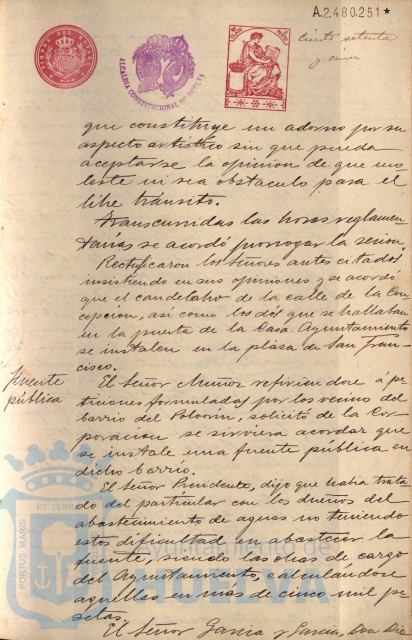 A.2.480.251*
ciento setenta
y cinco
ALCALDIA CONSTITUCIONAL DE HUELVA
que constituye un adorno por su
aspecto artístico sin que pueda
aceptarse la opinion de que mo
leste ni sea obstaculo para el
libre tránsito.
Transcurridas las horas reglamen-
tarias se acordó prorrogar la sesion.
Rectificaron los Señores antes citados
insistiendo en sus opiniones y se acordó
que el candelabro de la calle de la Con
cepcion, así como los dos que se hallaban
en la puerta de la Casa Ayuntamiento
se instalen en la plaza de San Fran-
cisco.
Fuente
pública
El Señor Muñoz refiriendose á pe
ticiones formuladas por los vecinos del
barrio del Polvorin, solicitó de la Cor
poracion se sirviera acordar que
se instale una fuente pública en
dicho barrio.
El Señor Presidente, dijo que habia trata
do del particular con los dueños del
abastecimiento de aguas no teniendo
estos dificultad en abastecer la
fuente, siendo las obras de cargo
del Ayuntamiento, calculandose
aquellas en mas de cinco mil pe
setas.
El Señor Garcia y Garcia Don Die
PORTUS MARIS
ET TERRAE
Ayuntamiento de
HUELVA